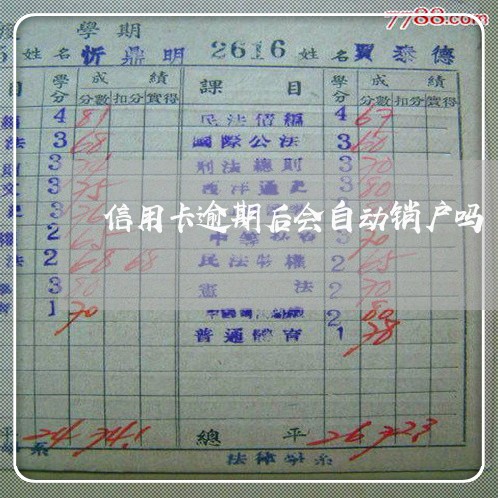 7788.com
學期
姓名 忻鼎明 2616 姓名 賈泰德
目 學分 成績 課目 學分 成績
分數 扣分 實得 分數 扣分 實得
4 81 民法債編 4 67
法 3 68 國際公法 3 60
3 刑法總則 3 70
3 75 西洋通史 3 80
信用卡逾期后会自动销户吗
2 65 3 70
法 2 68 68 民法物權 2 65
3 80 憲法 2 70
1 70 2 80
普通體育 1 78
平 24 74.1 總平 26 72.3
系 法律學系